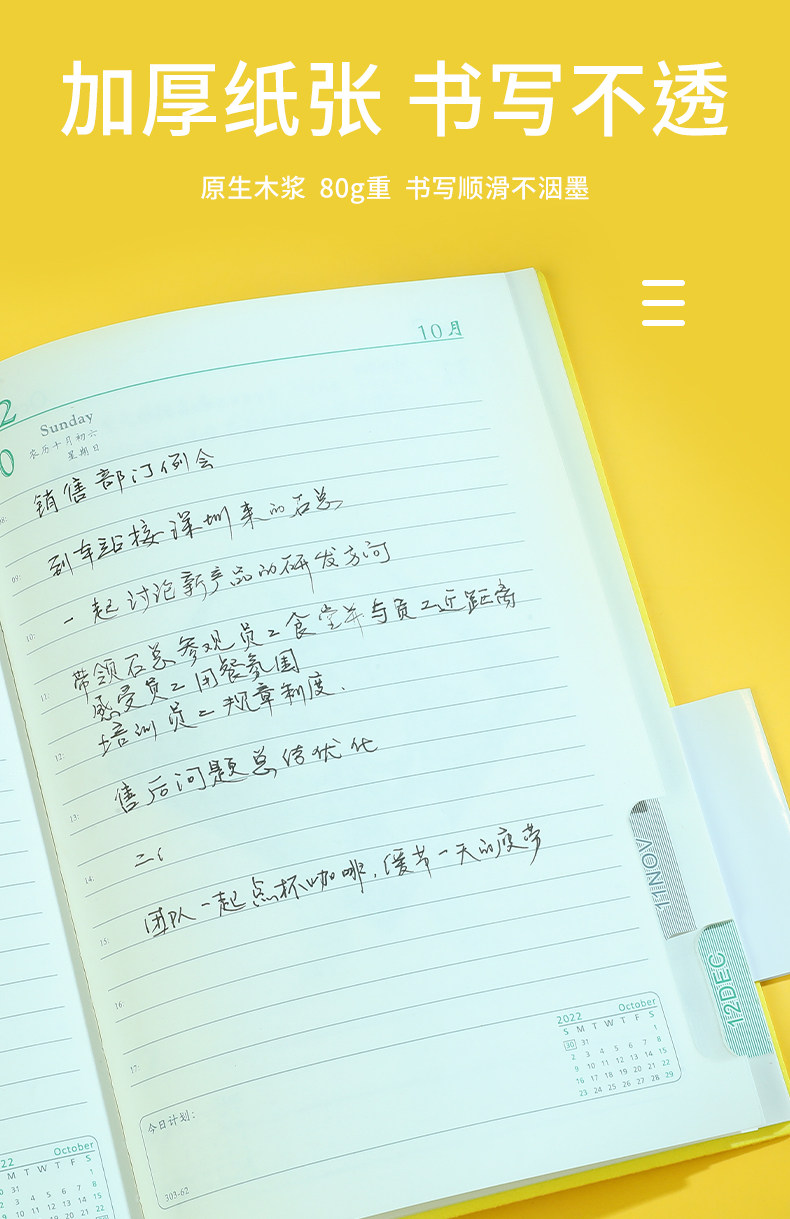 加厚纸张 书写不透
原生木浆 80g重 书写顺滑不洇墨
10月
2
0
Sunday
农历十月初六
星期日
08:
销售部门例会
09:
到车站接深圳来的石总
一起讨论新产品的研发方向
10:
带领石总参观员工食堂并与员工近距离
11:
感受员工用餐氛围
培训员工规章制度.
12:
售后问题总结优化
13:
14:
团队一起点杯咖啡,缓节一天的疲劳
15:
16:
17:
11NOV
12DEC
2022 October
S M T W T F S
30 31 1
2 3 4 5 6 7 8
9 10 11 12 13 14 15
16 17 18 19 20 21 22
23 24 25 26 27 28 29
今日计划:
303-62
22 October
M T W T F S
31 1
3 4 5 6 7 8
10 11 12 13 14 15